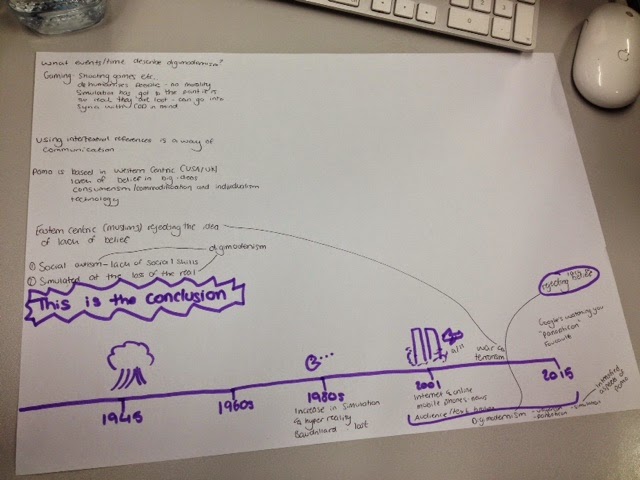 What events/time describe digimodernism?
Gaming - Shooting games etc.
dehumanises people - no
Simulation has got to the point it's
so real they are lost - can go into
Syria with COD in mind
Using intertextual references is a way of
communication
Pomo is based in Western Centric (USA/UK)
lack of belief in big ideas
consumerism/commodification and individualism
technology
Eastern Centric (muslims) rejecting the idea
of lack of belief
digimodernism
① Social autism - lack of social skills
② Simulated at the loss of the real
This is the conclusion
rejecting
Google's watching you
"panopticon"
Foucault
9/11
war on
terrorism
1945
1960s
1980s
2001
2015
Increase in simulation
& hyper reality
Baudrillard - lost
Internet & online
mobile phones - news
Audience/text
Digimodernism
- simulation
Intensified
aspects of
pomo